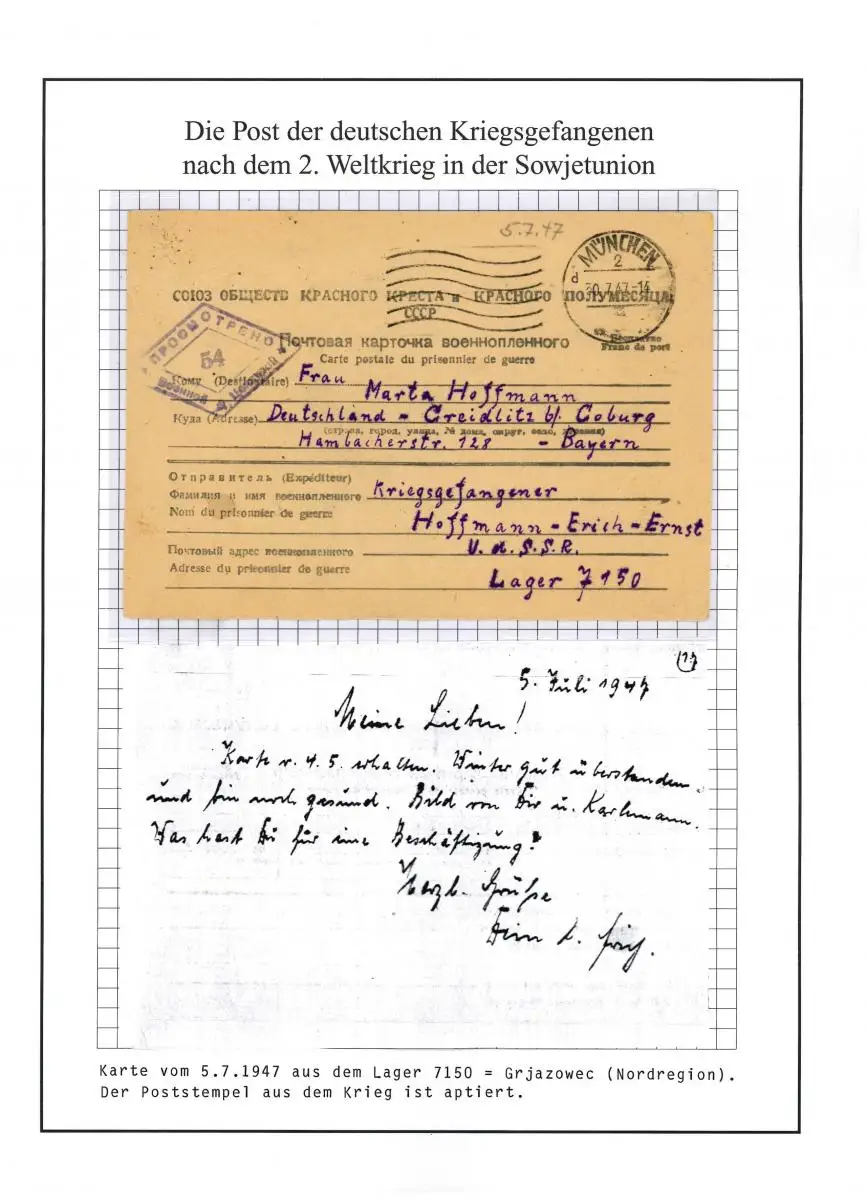 Die Post der deutschen Kriegsgefangenen
nach dem 2. Weltkrieg in der Sowjetunion
5.7.47
MÜNCHEN
2
d
30.7.47-14
СОЮЗ ОБЩЕСТВ КРАСНОГО КРЕСТА и КРАСНОГО ПОЛУМЕСЯЦА
СССР
ПРОСМОТРЕНО
54
Военной Цензурой
Почтовая карточка военнопленного
Бесплатно
Franc de port
Carte postale du prisonnier de guerre
Кому (Destinataire) Frau
Marta Hoffmann
Куда (Adresse) Deutschland - Creidlitz b/ Coburg
(страна, город, улица, № дома, округ, село, деревня)
Hambacherstr. 128 - Bayern
Отправитель (Expéditeur)
Фамилия и имя военнопленного Kriegsgefangener
Nom du prisonnier de guerre
Hoffmann - Erich - Ernst
Почтовый адрес военнопленного U. d. S.S.R.
Adresse du prisonnier de guerre
Lager 7150
5. Juli 1947
Meine Lieben!
Karte v. 4.5. erhalten. Winter gut überstanden
und bin noch gesund. Bild von Dir u. Karlmann.
Was hast Du für eine Beschäftigung?
Herzl. Grüße
Dein
Karte vom 5.7.1947 aus dem Lager 7150 = Grjazowec (Nordregion).
Der Poststempel aus dem Krieg ist aptiert.